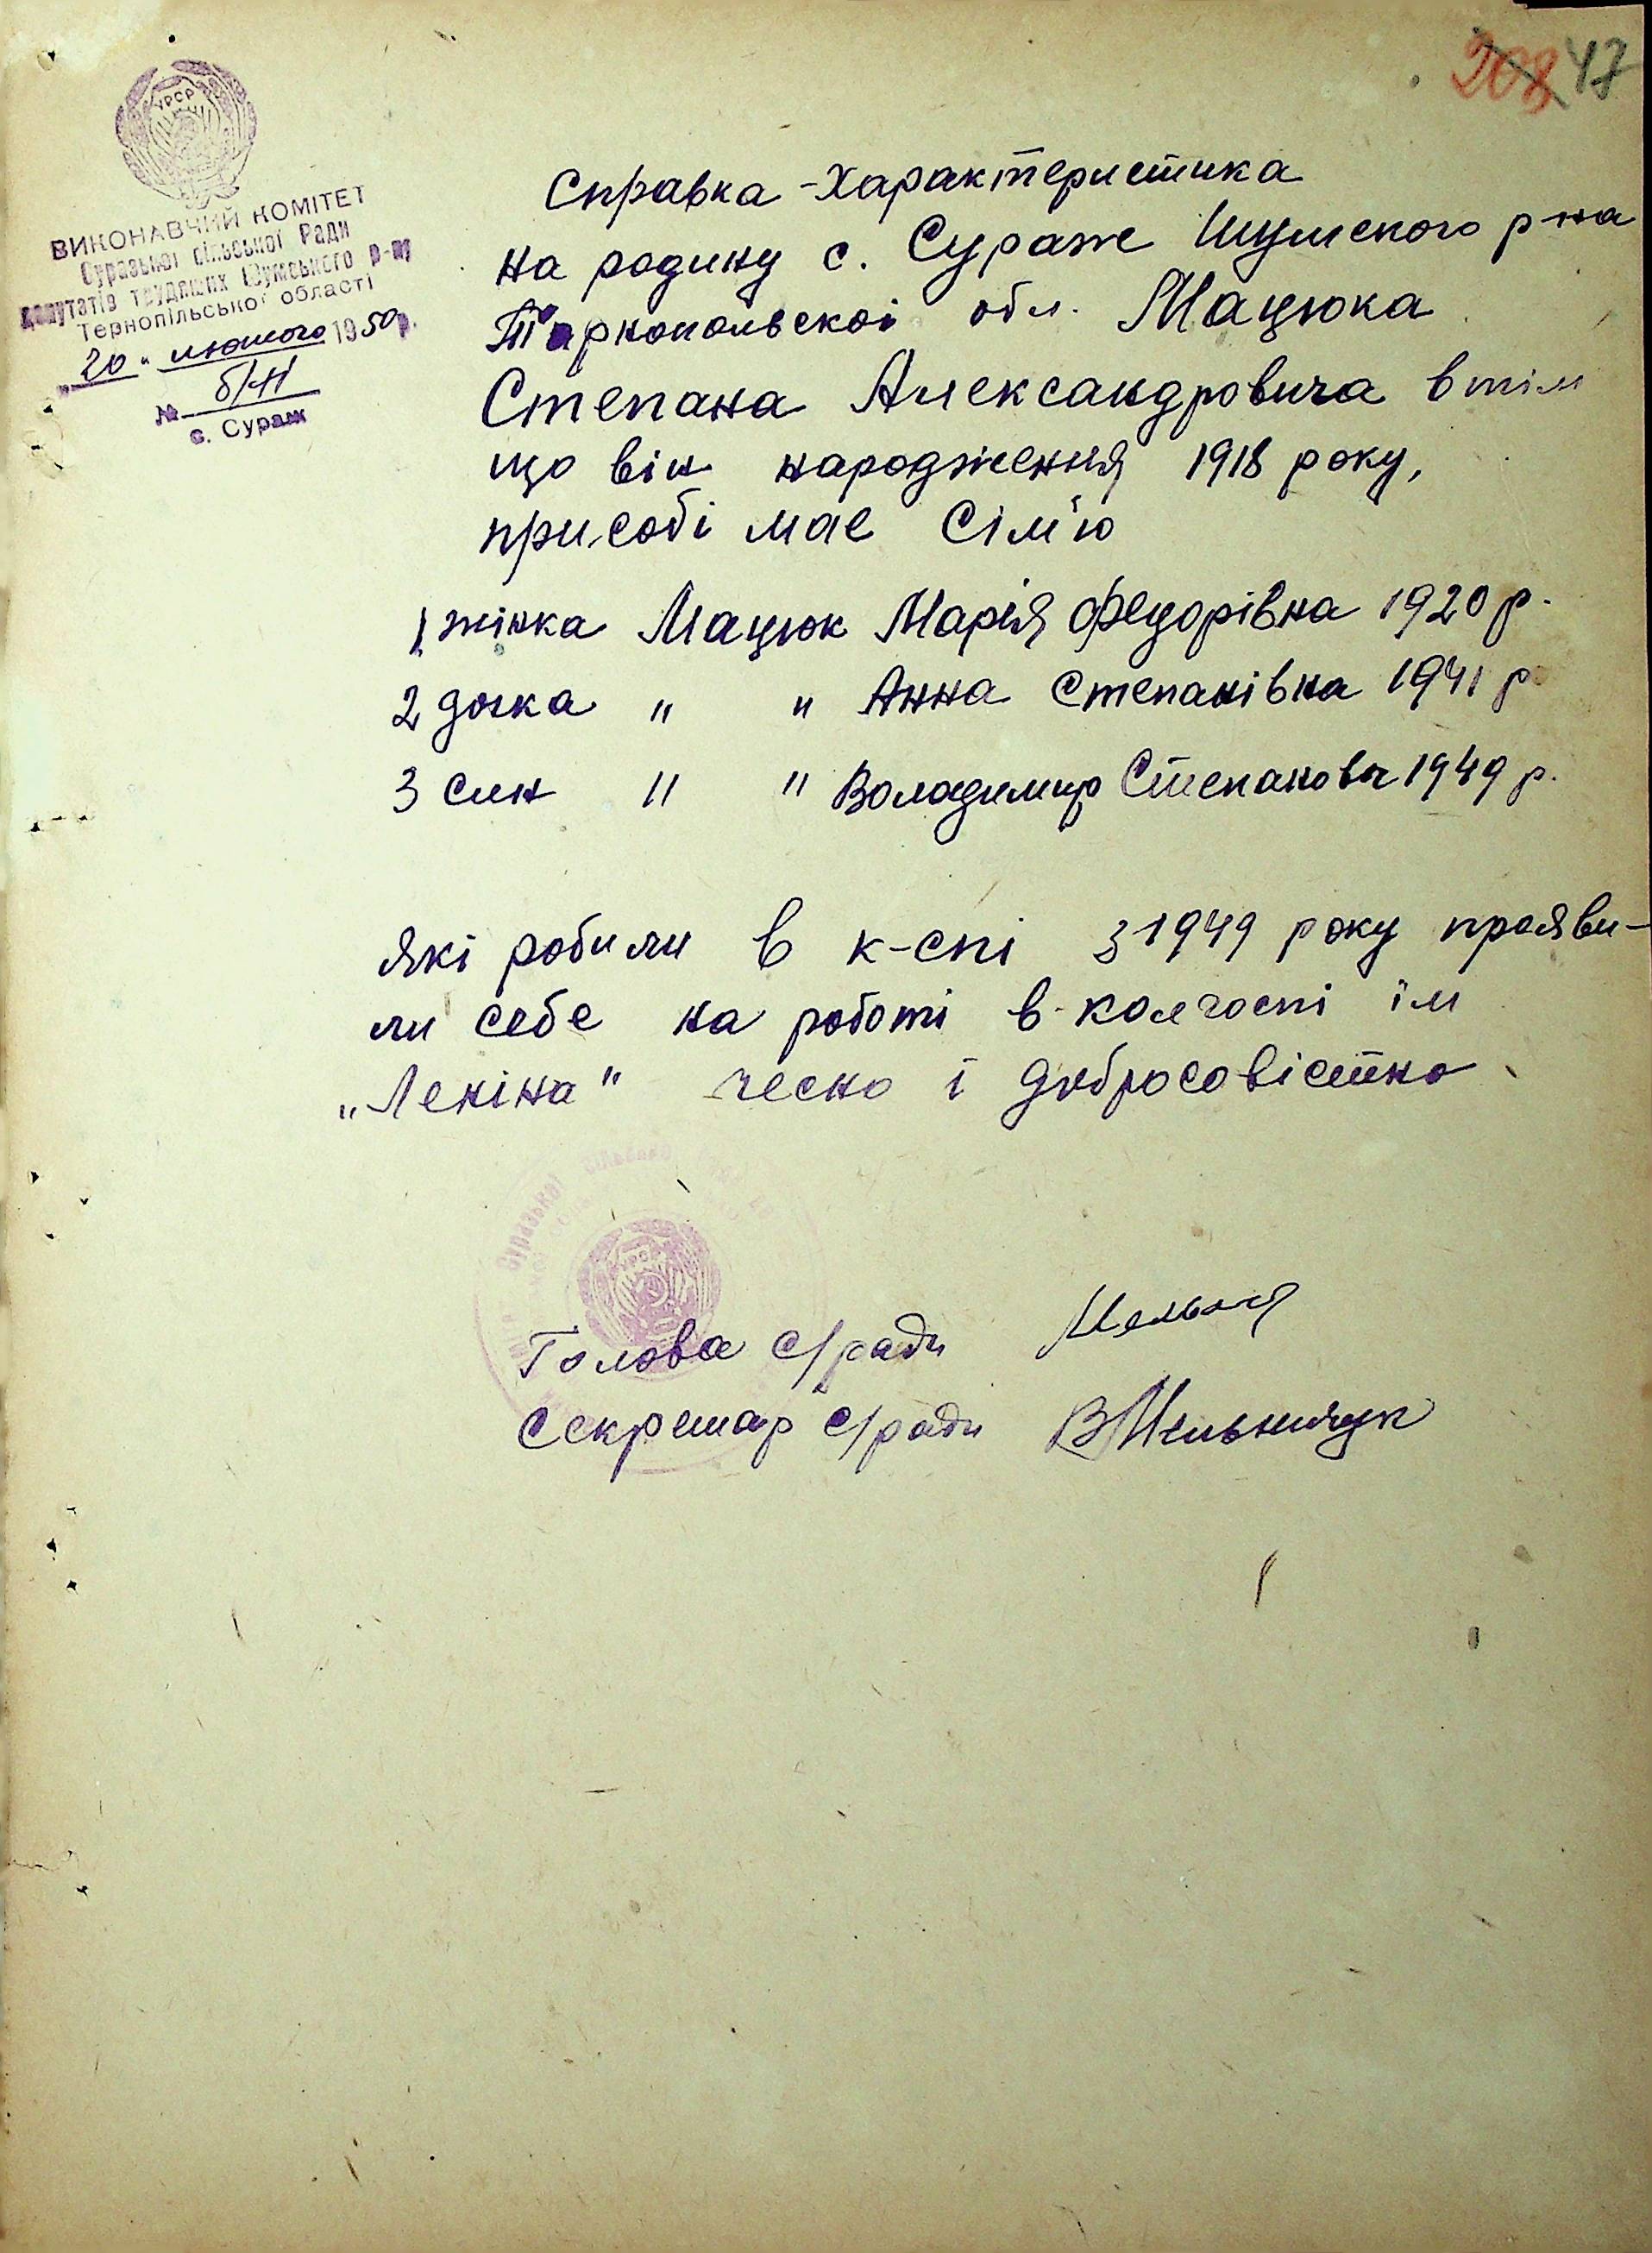 208 47
УРСР
ВИКОНАВЧИЙ КОМІТЕТ
Суразької сільської Ради
депутатів трудящих Шумського р-ну
Тернопільської області
"20" лютого 1950р.
№ б/н
с. Сураж
Справка-характеристика
на родину с. Сураже Шумского р-на
Тарнопольскоі обл. Мацюка
Степана Александровича в тім
що він народження 1918 року,
при собі має Сім'ю
1 жінка Мацюк Марія Федорівна 1920 р.
2 дочка " " Анна Степанівна 1941 р
3 син " " Володимир Степанович 1949 р.
які робили в к-спі з 1949 року прояви-
ли себе на роботі в колгоспі ім
"Леніна" чесно і добросовістно
Суразької сільської
УРСР
Голова с/ради
Секретар с/ради ВМельничук